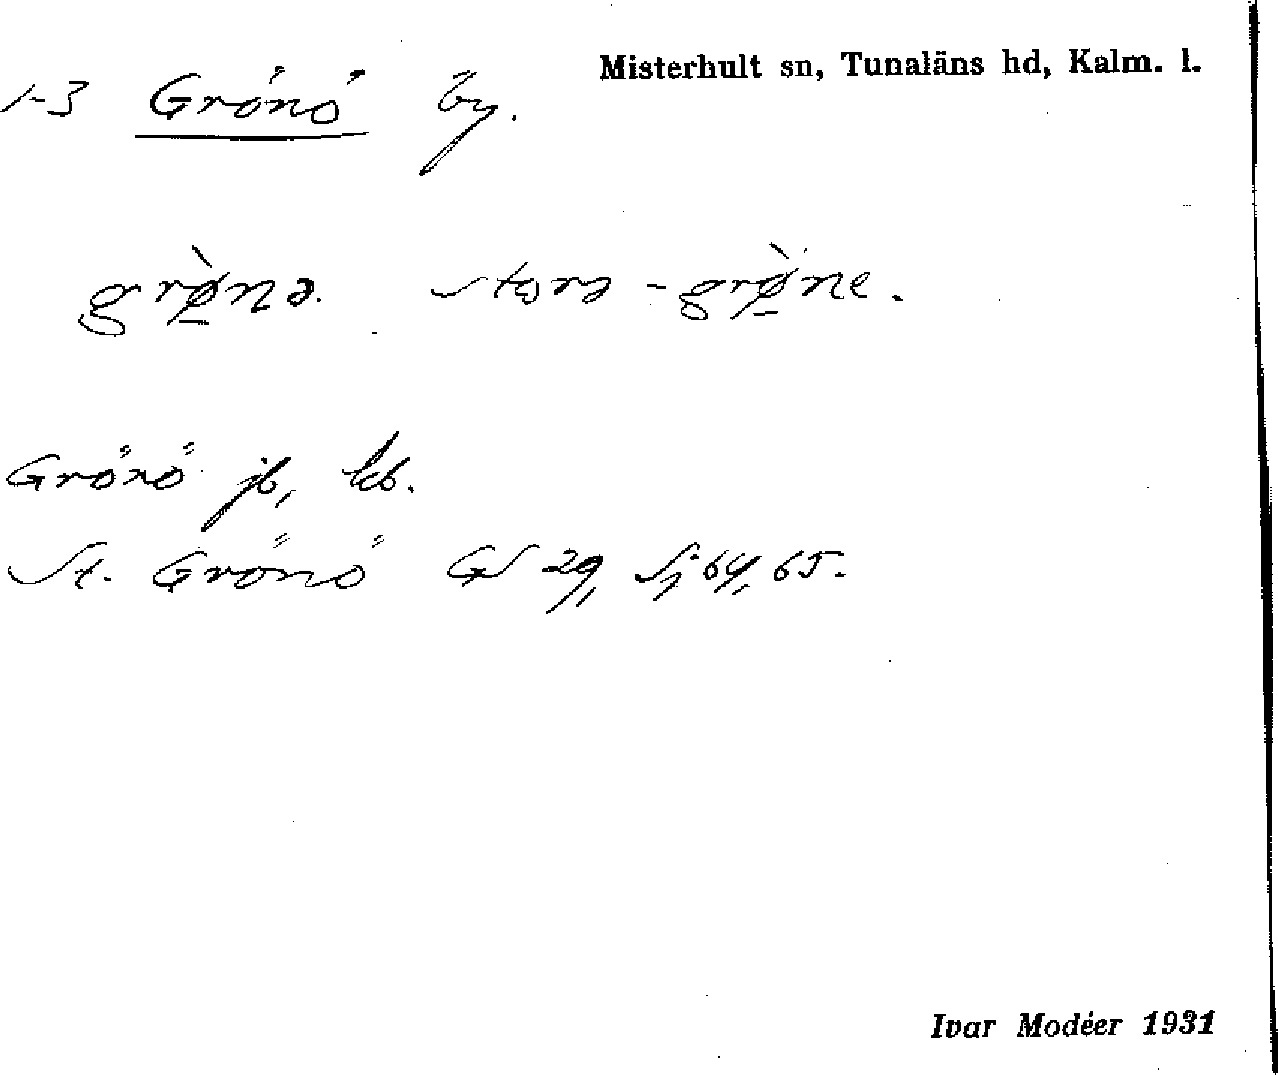 Misterhult sn, Tunaläns hd, Kalm. l.
1-3 Grönö by.
grø̀nə. stora - grø̀ne.
Grönö jb, kb.
St. Grönö GS 29, Sj 64, 65.
Ivar Modéer 1931